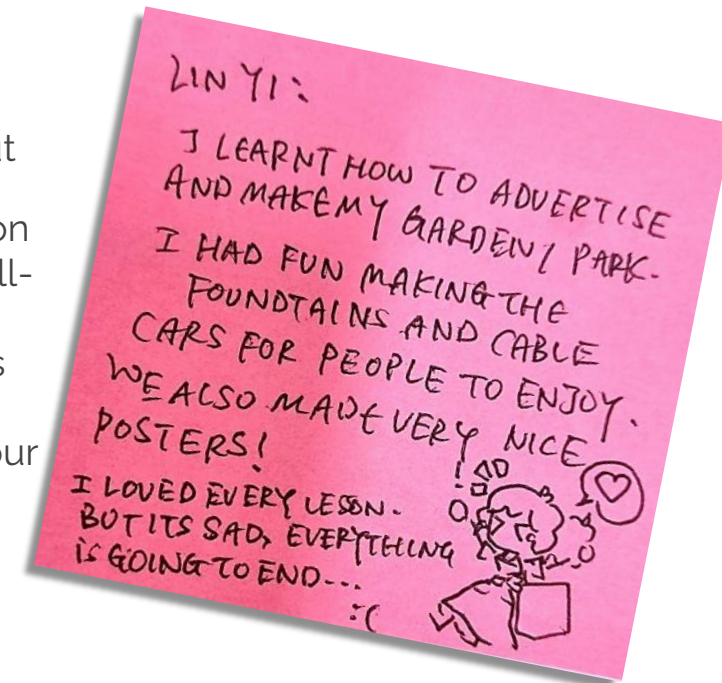 ut
on
ll-
s
our
LIN YI:
I LEARNT HOW TO ADVERTISE
AND MAKE MY GARDEN / PARK.
I HAD FUN MAKING THE
FOUNDTAINS AND CABLE
CARS FOR PEOPLE TO ENJOY.
WE ALSO MADE VERY NICE
POSTERS!
I LOVED EVERY LESSON.
BUT ITS SAD, EVERYTHING
iS GOING TO END...
:(